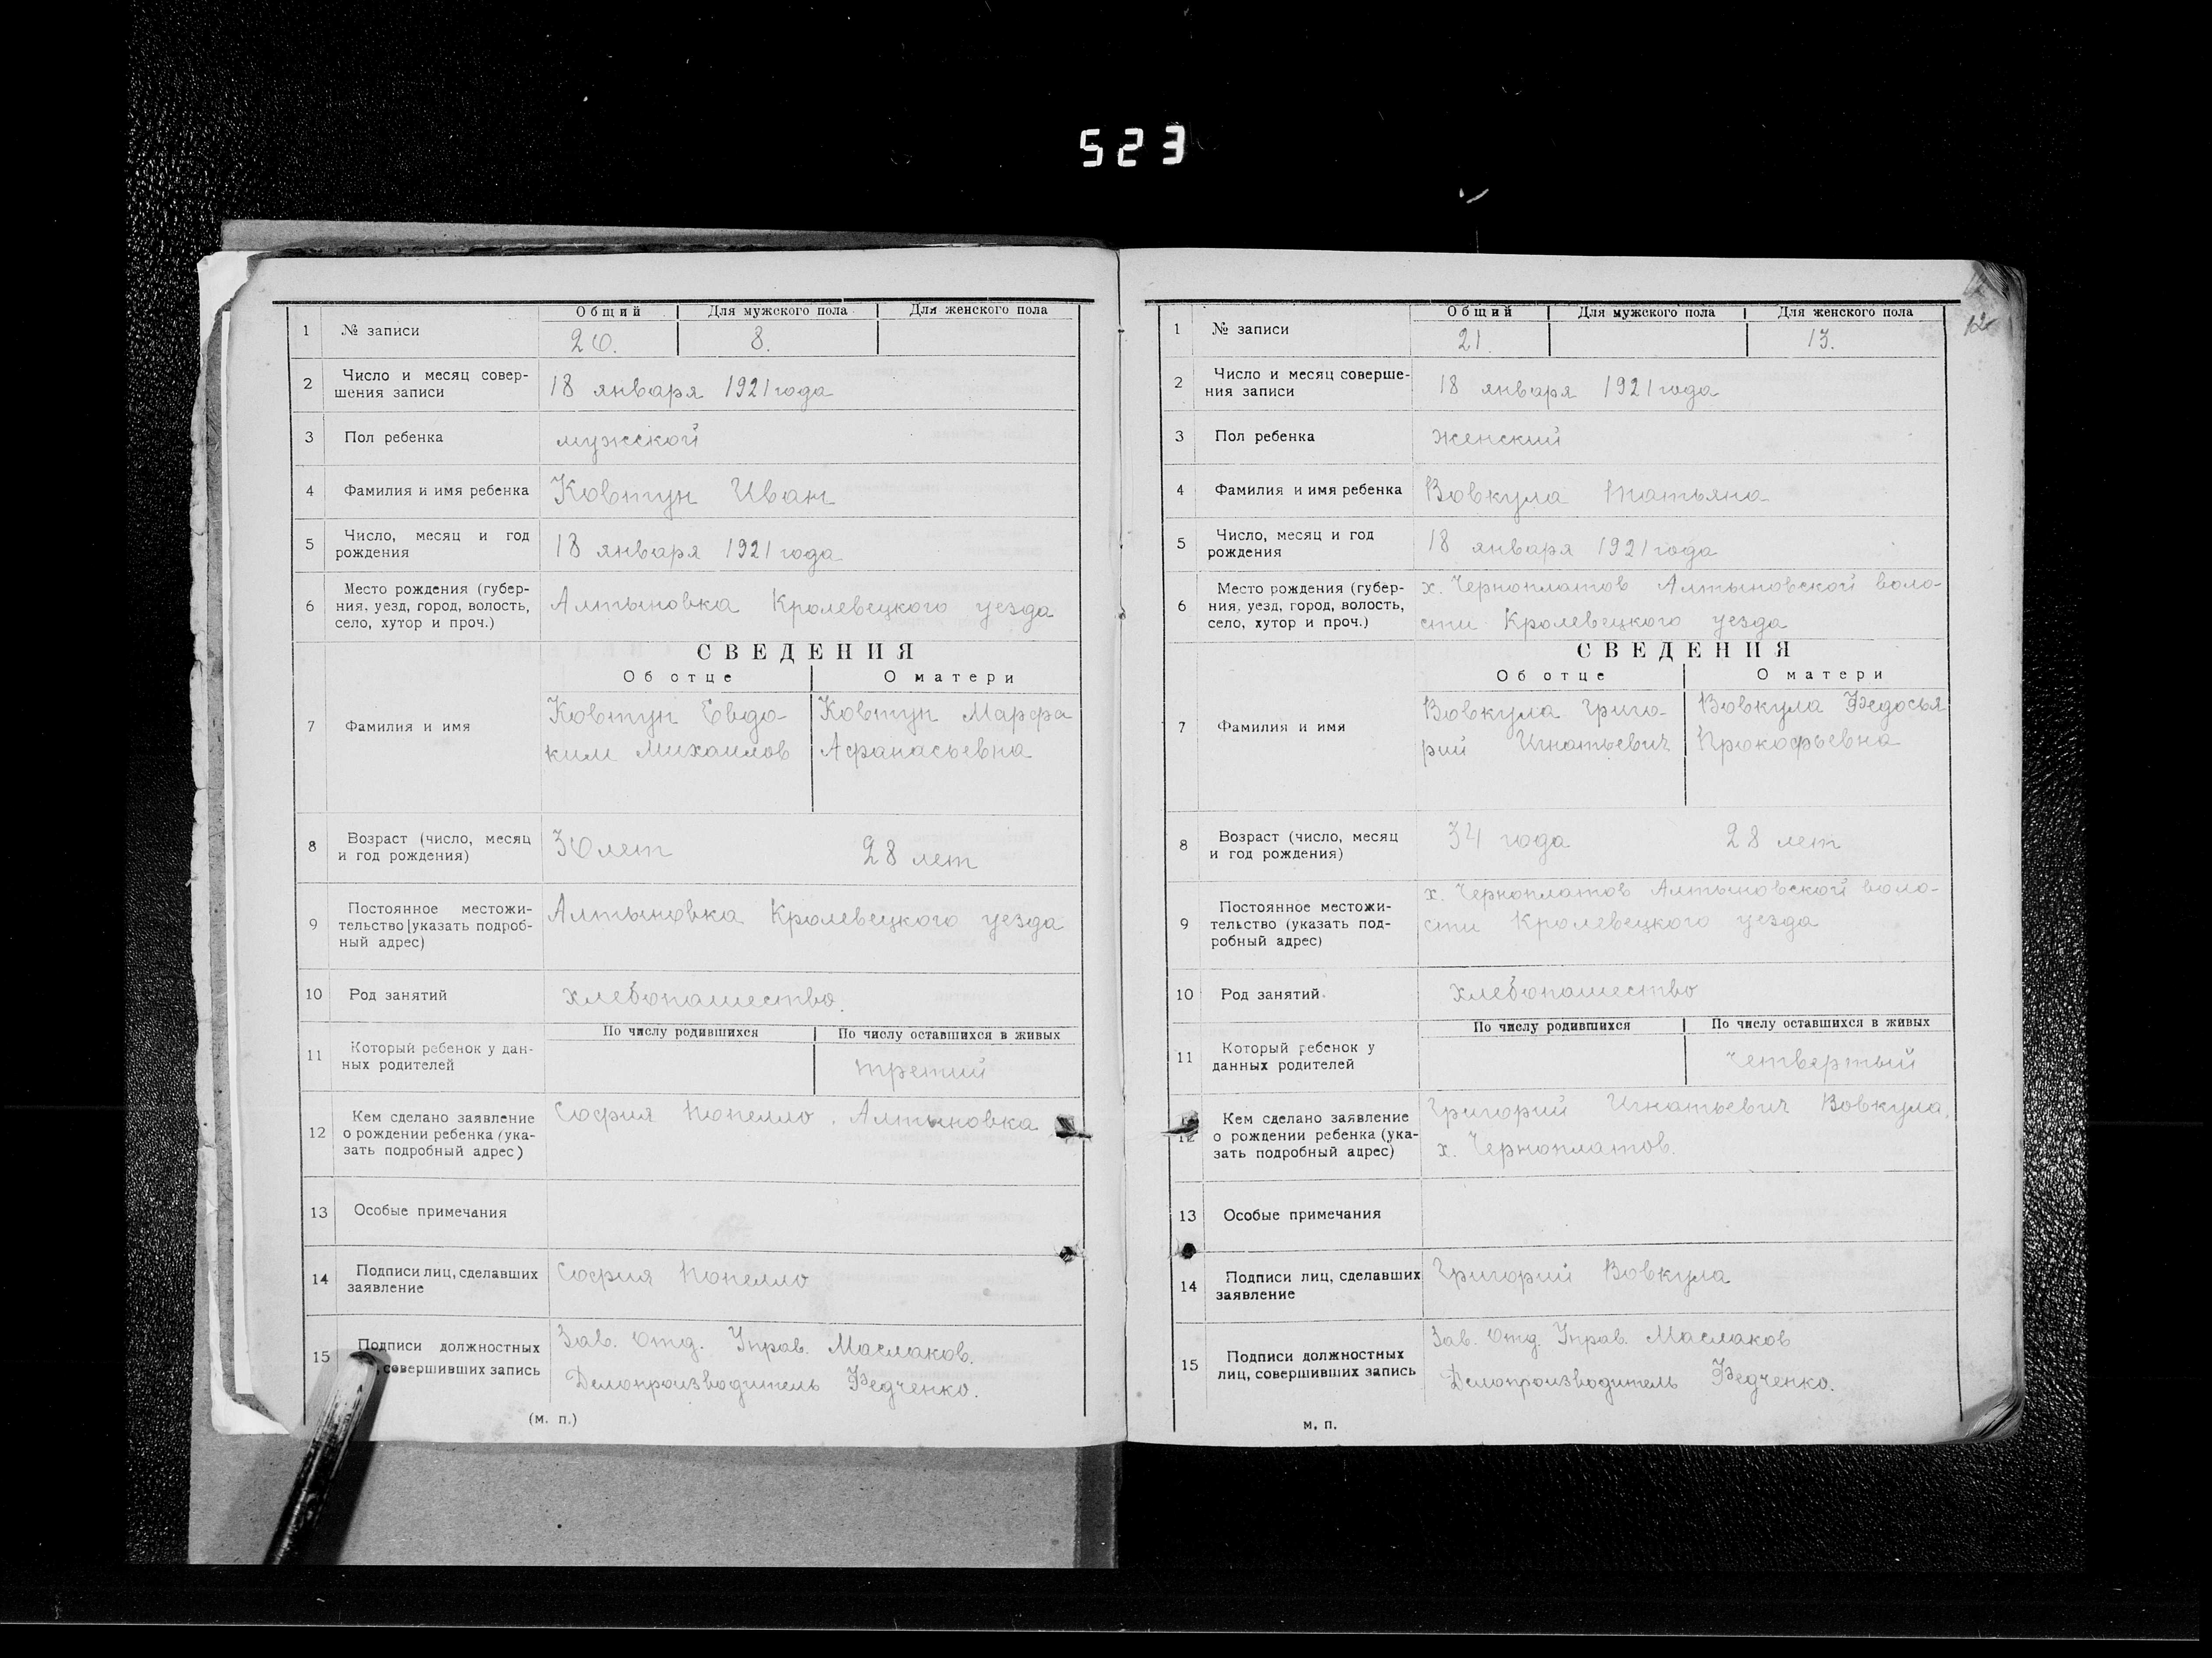 523
1 № записи
Общий Для мужского пола Для женского пола
20. 8.
2 Число и месяц совер-
шения записи
18 января 1921 года
3 Пол ребенка
мужской
4 Фамилия и имя ребенка
Ковтун Иван
5 Число, месяц и год
рождения
18 января 1921 года
6 Место рождения (губер-
ния, уезд, город, волость,
село, хутор и проч.)
Алтыновка Кролевецкого уезда
СВЕДЕНИЯ
Об отце О матери
7 Фамилия и имя
Ковтун Евдо-
ким Михаилов
Ковтун Марфа
Афанасьевна
8 Возраст (число, месяц
и год рождения)
30 лет 28 лет
9 Постоянное местожи-
тельство [указать подроб-
ный адрес)
Алтыновка Кролевецкого уезда
10 Род занятий
хлебопашество.
11 Который ребенок у дан-
ных родителей
По числу родившихся По числу оставшихся в живых
третий
12 Кем сделано заявление
о рождении ребенка (ука-
зать подробный адрес)
София Попелло. Алтыновка
13 Особые примечания
14 Подписи лиц, сделавших
заявление
София Попелло
15 Подписи должностных
совершивших запись
Зав. Отд. Управ. Маслаков.
Делопроизводитель Федченко.
(м. п.)
12
1 № записи
Общий Для мужского пола Для женского пола
21. 13.
2 Число и месяц соверше-
ния записи
18 января 1921 года
3 Пол ребенка
женский
4 Фамилия и имя ребенка
Вовкула Татьяна
5 Число, месяц и год
рождения
18 января 1921 года
6 Место рождения (губер-
ния, уезд, город, волость,
село, хутор и проч.)
х. Черноплатов Алтыновской воло-
сти Кролевецкого уезда
СВЕДЕНИЯ
Об отце О матери
7 Фамилия и имя
Вовкула Григо-
рий Игнатьевич
Вовкула Федосья
Прокофьевна
8 Возраст (число, месяц
и год рождения)
34 года 28 лет
9 Постоянное местожи-
тельство (указать под-
робный адрес)
х. Черноплатов Алтыновской воло-
сти Кролевецкого уезда
10 Род занятий
хлебопашество
11 Который ребенок у
данных родителей
По числу родившихся По числу оставшихся в живых
четвертый
12 Кем сделано заявление
о рождении ребенка (ука-
зать подробный адрес)
Григорий Игнатьевич Вовкула,
х. Черноплатов.
13 Особые примечания
14 Подписи лиц, сделавших
заявление
Григорий Вовкула
15 Подписи должностных
лиц, совершивших запись
Зав. Отд. Управ. Маслаков
Делопроизводитель Федченко.
м. п.